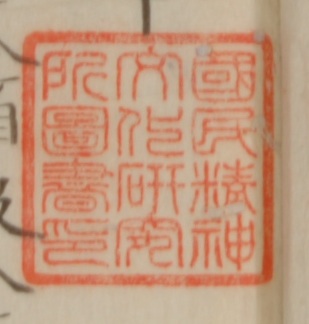 國民精神
文化研究
所圖書印